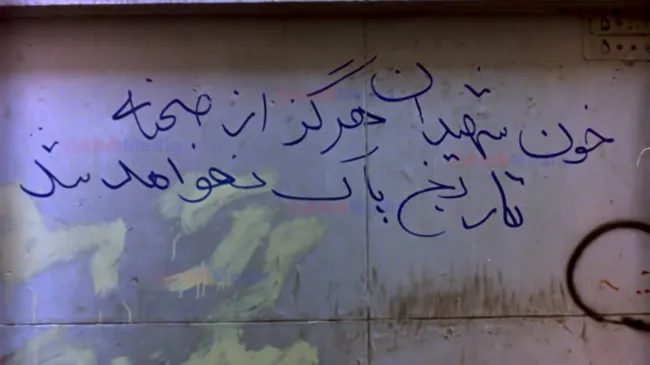 خون شهیدان هرگز از صحنه
تاریخ پاک نخواهد شد